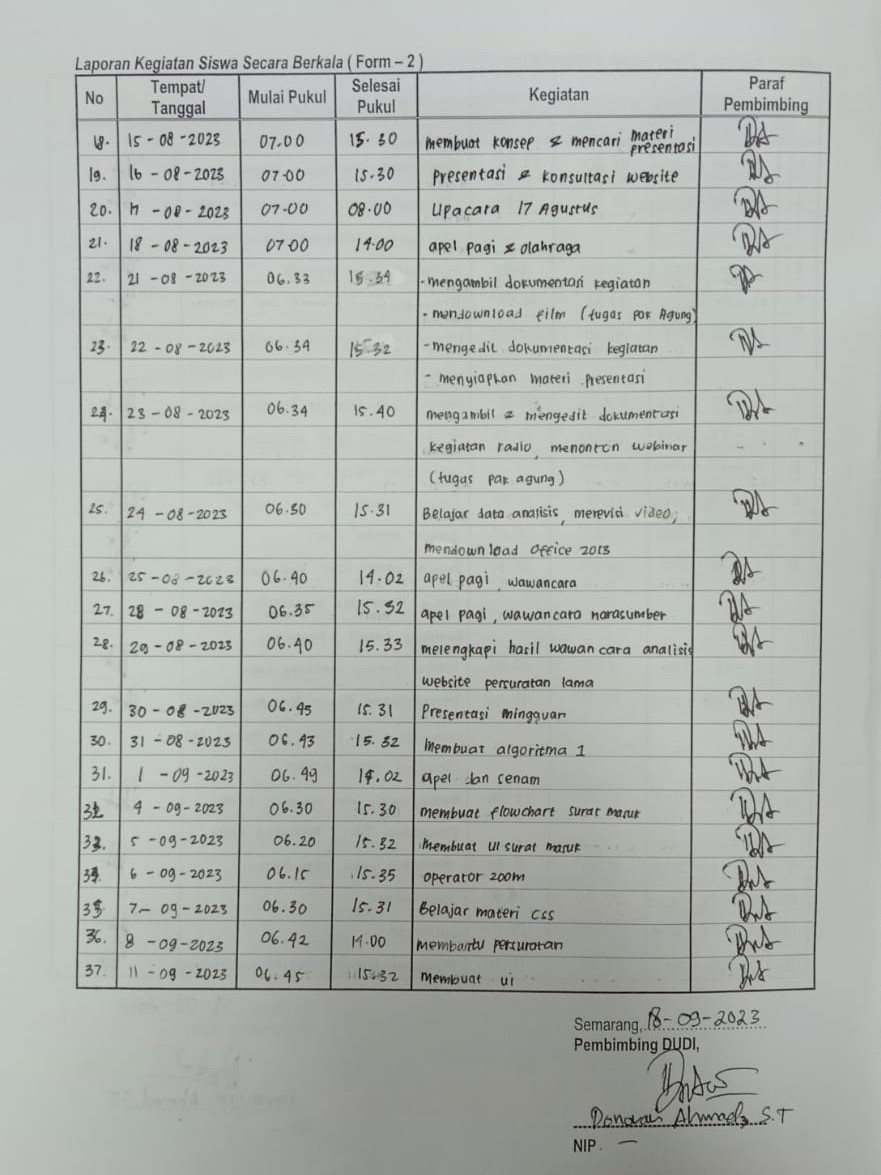 Laporan Kegiatan Siswa Secara Berkala ( Form – 2 )
No Tempat/ Tanggal Mulai Pukul Selesai Pukul Kegiatan Paraf Pembimbing
18. 15 - 08 - 2023 07.00 15.30 membuat konsep & mencari materi presentasi
19. 16 - 08 - 2023 07.00 15.30 presentasi & konsultasi website
20. 17 - 08 - 2023 07.00 08.00 Upacara 17 Agustus
21. 18 - 08 - 2023 07.00 14.00 apel pagi & olahraga
22. 21 - 08 - 2023 06.33 15.34 - mengambil dokumentasi kegiatan
- mendownload film (tugas pak Agung)
23. 22 - 08 - 2023 06.34 15.32 - mengedit dokumentasi kegiatan
- menyiapkan materi presentasi
24. 23 - 08 - 2023 06.34 15.40 mengambil & mengedit dokumentasi
kegiatan radio, menonton webinar
(tugas pak agung)
25. 24 - 08 - 2023 06.50 15.31 Belajar data analisis, merevisi video,
mendownload Office 2013
26. 25 - 08 - 2023 06.40 14.02 apel pagi, wawancara
27. 28 - 08 - 2023 06.35 15.32 apel pagi, wawancara narasumber
28. 29 - 08 - 2023 06.40 15.33 melengkapi hasil wawancara analisis
website persuratan lama
29. 30 - 08 - 2023 06.45 15.31 Presentasi mingguan
30. 31 - 08 - 2023 06.43 15.32 Membuat algoritma 1
31. 1 - 09 - 2023 06.49 14.02 apel dan senam
32. 4 - 09 - 2023 06.30 15.30 membuat flowchart surat masuk
33. 5 - 09 - 2023 06.20 15.32 Membuat UI surat masuk
34. 6 - 09 - 2023 06.15 15.35 operator zoom
35. 7 - 09 - 2023 06.30 15.31 Belajar materi css
36. 8 - 09 - 2023 06.42 14.00 Membantu persuratan
37. 11 - 09 - 2023 06.45 15.32 membuat ui
Semarang, 18 - 09 - 2023
Pembimbing DUDI,
Donovan Ahmad, S.T
NIP. —